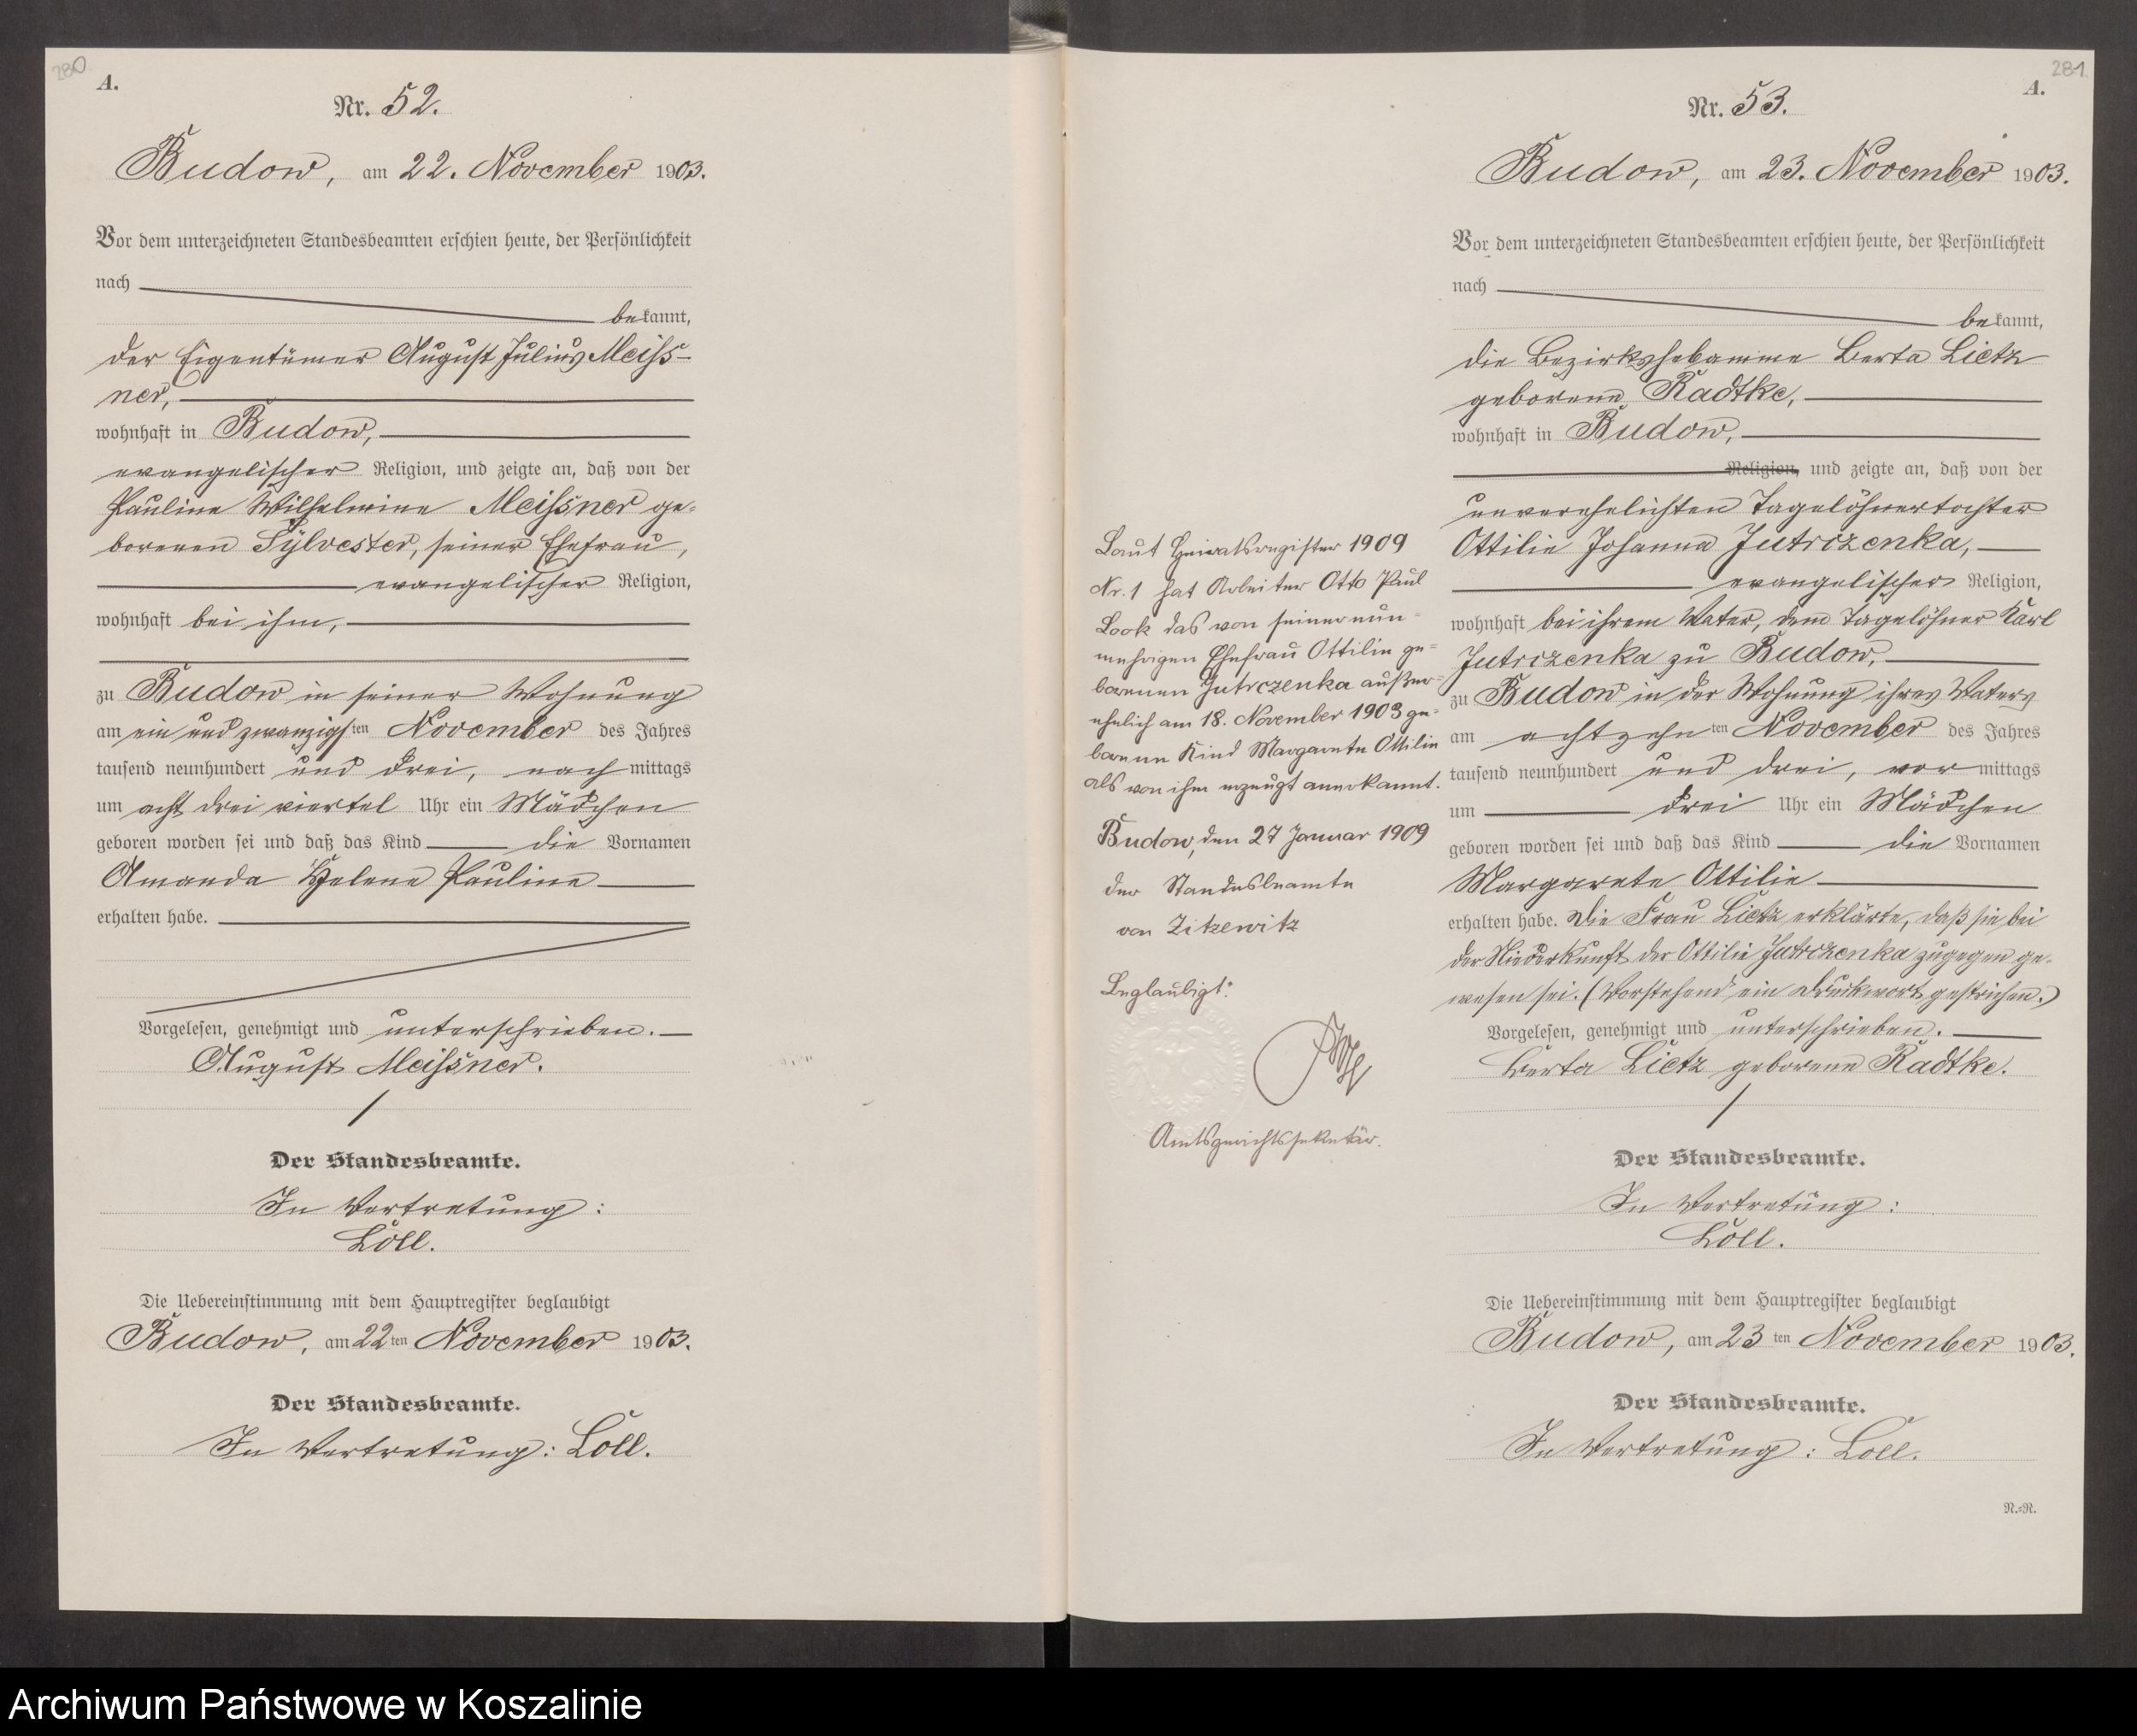 280
A.
Nr. 52.
Budow, am 22. November 1903.
Vor dem unterzeichneten Standesbeamten erschien heute, der Persönlichkeit
nach
bekannt,
der Eigentümer August Julius Meiss-
ner,
wohnhaft in Budow,
evangelischer Religion, und zeigte an, daß von der
Pauline Wilhelmine Meissner ge-
borenen Sylvester, seiner Ehefrau,
evangelischer Religion,
wohnhaft bei ihm,
zu Budow in seiner Wohnung
am ein und zwanzigsten November des Jahres
tausend neunhundert und drei, nachmittags
um acht drei viertel Uhr ein Mädchen
geboren worden sei und daß das Kind die Vornamen
Amanda Helene Pauline
erhalten habe.
Vorgelesen, genehmigt und unterschrieben.
August Meissner.
Der Standesbeamte.
In Vertretung:
Löll.
Die Uebereinstimmung mit dem Hauptregister beglaubigt
Budow, am 22ten November 1903.
Der Standesbeamte.
In Vertretung: Loll.
281.
A.
Nr. 53.
Budow, am 23. November 1903.
Vor dem unterzeichneten Standesbeamten erschien heute, der Persönlichkeit
nach
bekannt,
die Bezirkshebamme Berta Lietz
geborene Radtke,
wohnhaft in Budow,
Religion, und zeigte an, daß von der
unverehelichten Tagelöhnertochter
Ottilie Johanna Jutrczenka,
evangelischer Religion,
wohnhaft bei ihrem Vater, dem Tagelöhner Karl
Jutrczenka zu Budow,
zu Budow in der Wohnung ihres Vaters
am achtzehnten November des Jahres
tausend neunhundert und drei, vormittags
um drei Uhr ein Mädchen
geboren worden sei und daß das Kind die Vornamen
Margarete Ottilie
erhalten habe. Die Frau Lietz erklärte, daß sie bei
der Niederkunft der Ottilie Jutrczenka zugegen ge-
wesen sei. (Vorstehend ein Druckwort gestrichen.)
Vorgelesen, genehmigt und unterschrieben.
Berta Lietz geborene Radtke.
Der Standesbeamte.
In Vertretung:
Loll.
Die Uebereinstimmung mit dem Hauptregister beglaubigt
Budow, am 23ten November 1903.
Der Standesbeamte.
In Vertretung: Loll.
N.=N.
Laut Heiratsregister 1909
Nr. 1 hat Arbeiter Otto Paul
Look das von seiner nun-
mehrigen Ehefrau Ottilie ge-
borenen Jutrczenka außer-
ehelich am 18. November 1903 ge-
borene Kind Margarete Ottilie
als von ihm erzeugt anerkannt.
Budow, den 27 Januar 1909
der Standesbeamte
von Zitzewitz
Beglaubigt:
Amtsgerichtssekretär.
Archiwum Państwowe w Koszalinie